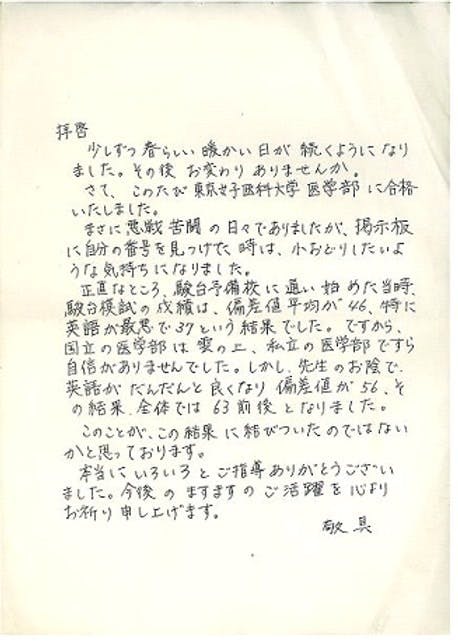 拝啓
少しずつ春らしい暖かい日が続くようになり
ました。その後お変わりありませんか。
さて、このたび東京女子医科大学医学部に合格
いたしました。
まさに悪戦苦闘の日々でありましたが、掲示板
に自分の番号を見つけた時は、小おどりしたいよ
うな気持ちになりました。
正直なところ、駿台予備校に通い始めた当時、
駿台模試の成績は、偏差値平均が46、特に
英語が最悪で37という結果でした。ですから、
国立の医学部は雲の上、私立の医学部ですら
自信がありませんでした。しかし、先生のお陰で、
英語がだんだんと良くなり偏差値が56、そ
の結果、全体では63前後となりました。
このことが、この結果に結びついたのではない
かと思っております。
本当にいろいろとご指導ありがとうござい
ました。今後のますますのご活躍を心より
お祈り申し上げます。
敬具